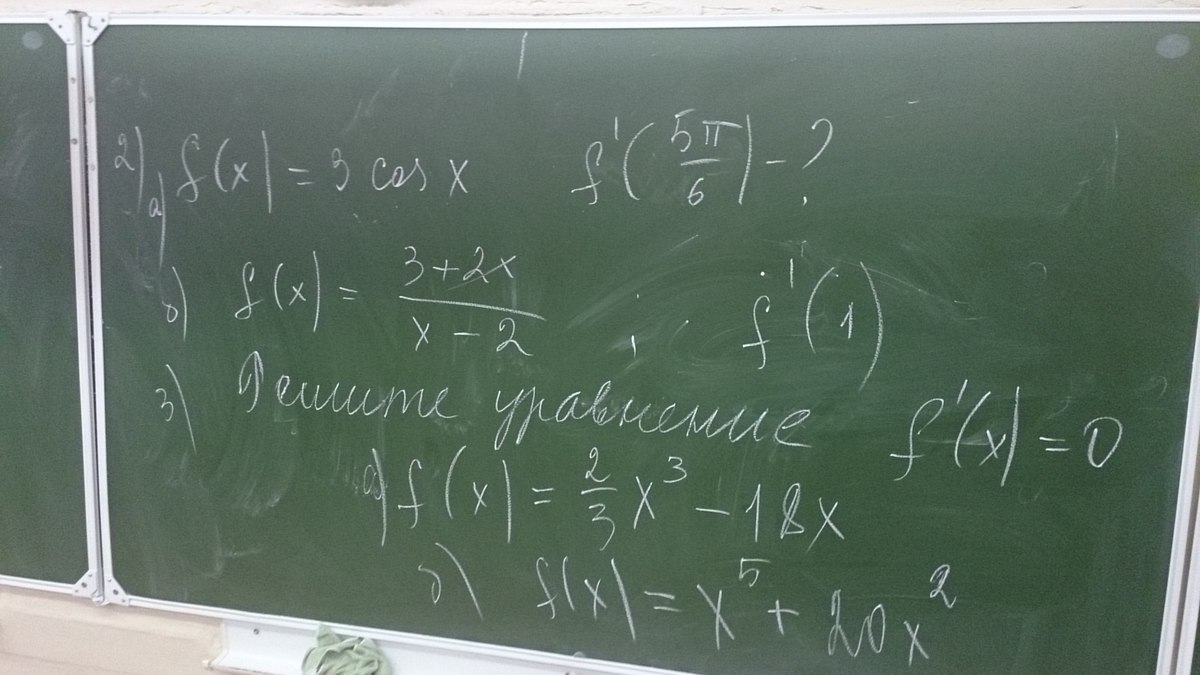 2) а) f(x) = 3 cos x f'(5π/6) - ?
б) f(x) = (3+2x)/(x-2) ; f'(1)
3) Решите уравнение f'(x) = 0
а) f(x) = 2/3 x³ - 18x
б) f(x) = x⁵ + 20x²